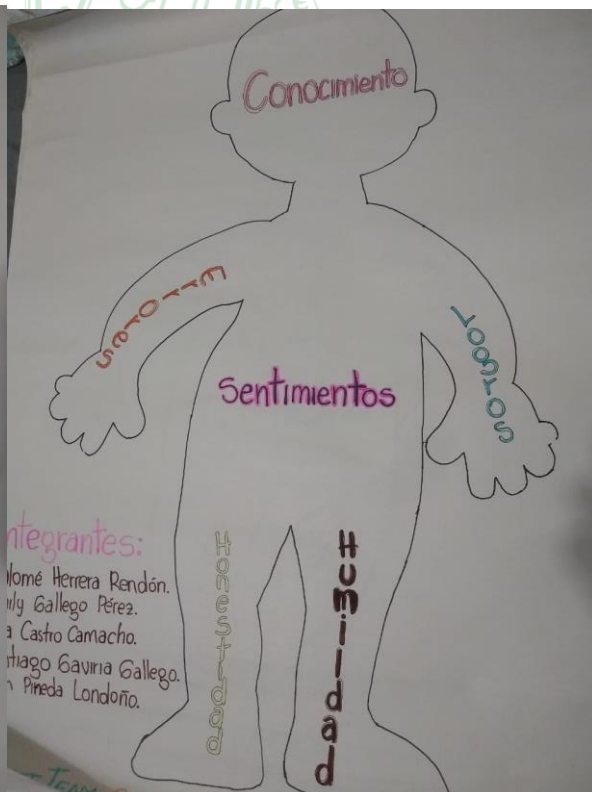 Conocimiento
Errores
Logros
Sentimientos
Honestidad
Humildad
ntegrantes:
lomé Herrera Rendón.
ly Gallego Pérez.
a Castro Camacho.
tiago Gaviria Gallego.
n Pineda Londoño.
TEAM